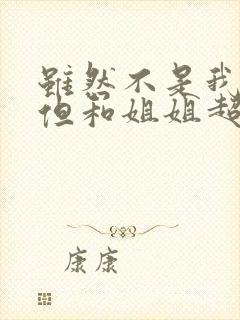 虽然不是我
但和姐姐超
康康